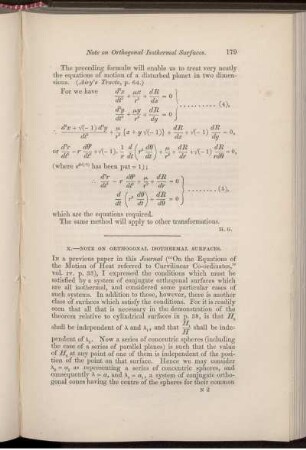 Note on Orthogonal Isothermal Surfaces. 179
The preceding formulæ will enable us to treat very neatly
the equations of motion of a disturbed planet in two dimen-
sions. (Airy's Tracts, p. 64.)
For we have d²x/dt² + μx/r³ + dR/dx = 0
d²y/dt² + μy/r³ + dR/dy = 0 } .......... (A),
or
(where has been put = 1);
∴ d²r/dt² − r dθ²/dt² + μ/r² + dR/dr = 0
d/dt (r² dθ/dt) + dR/dθ = 0 } .......... (A),
which are the equations required.
The same method will apply to other transformations.
H. G.
X.—NOTE ON ORTHOGONAL ISOTHERMAL SURFACES.
IN a previous paper in this Journal ("On the Equations of
the Motion of Heat referred to Curvilinear Co-ordinates,"
vol. IV. p. 33), I expressed the conditions which must be
satisfied by a system of conjugate orthogonal surfaces which
are all isothermal, and considered some particular cases of
such systems. In addition to these, however, there is another
class of surfaces which satisfy the conditions. For it is readily
seen that all that is necessary in the demonstration of the
theorem relative to cylindrical surfaces in p. 38, is that H,
shall be independent of λ and λ₁, and that shall be inde-
pendent of Now a series of concentric spheres (including
the case of a series of parallel planes) is such that the value
of H, at any point of one of them is independent of the posi-
tion of the point on that surface. Hence we may consider
as representing a series of concentric spheres, and
consequently a system of conjugate ortho-
gonal cones having the centre of the spheres for their common
N 2